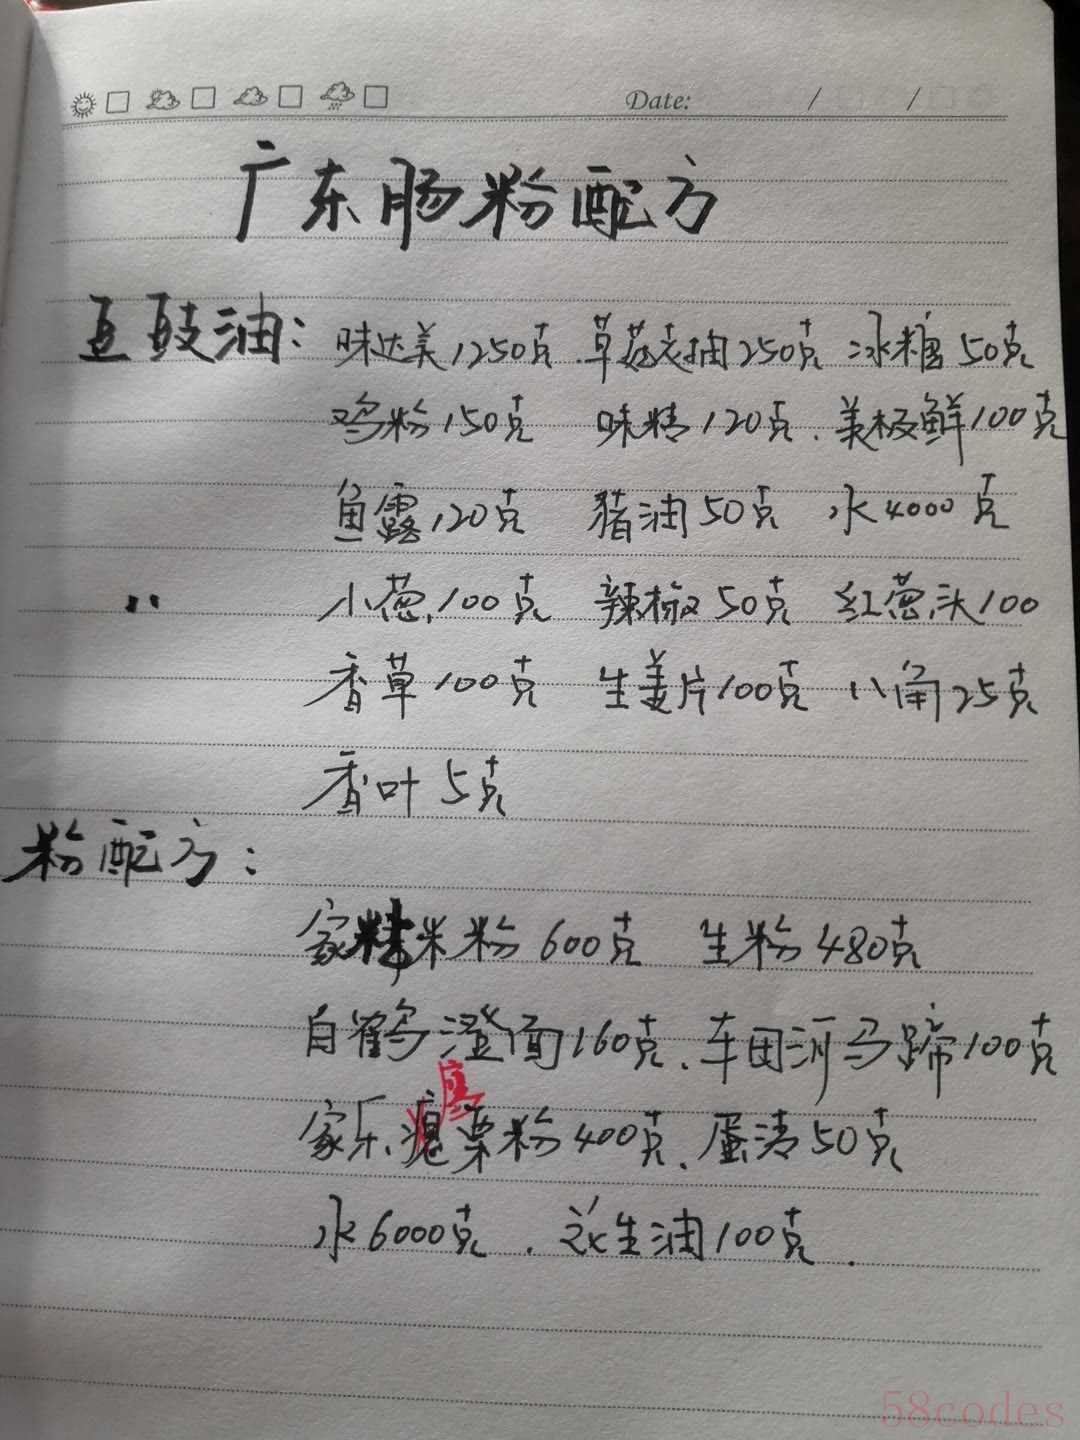 Date: / /
广东肠粉配方
豆豉油: 味达美1250克.草菇老抽250克 冰糖50克
鸡粉150克 味精120克.美极鲜100克
鱼露120克 猪油50克 水4000克
小葱.100克 辣椒50克 红葱头100
香草100克 生姜片100克 八角25克
香叶5克
粉配方:
家米粉600克 生粉480克
白鹤澄面160克.车田河马蹄100克
鹰
家乐粟粉400克.蛋清50克
水6000克.花生油100克.
58codes